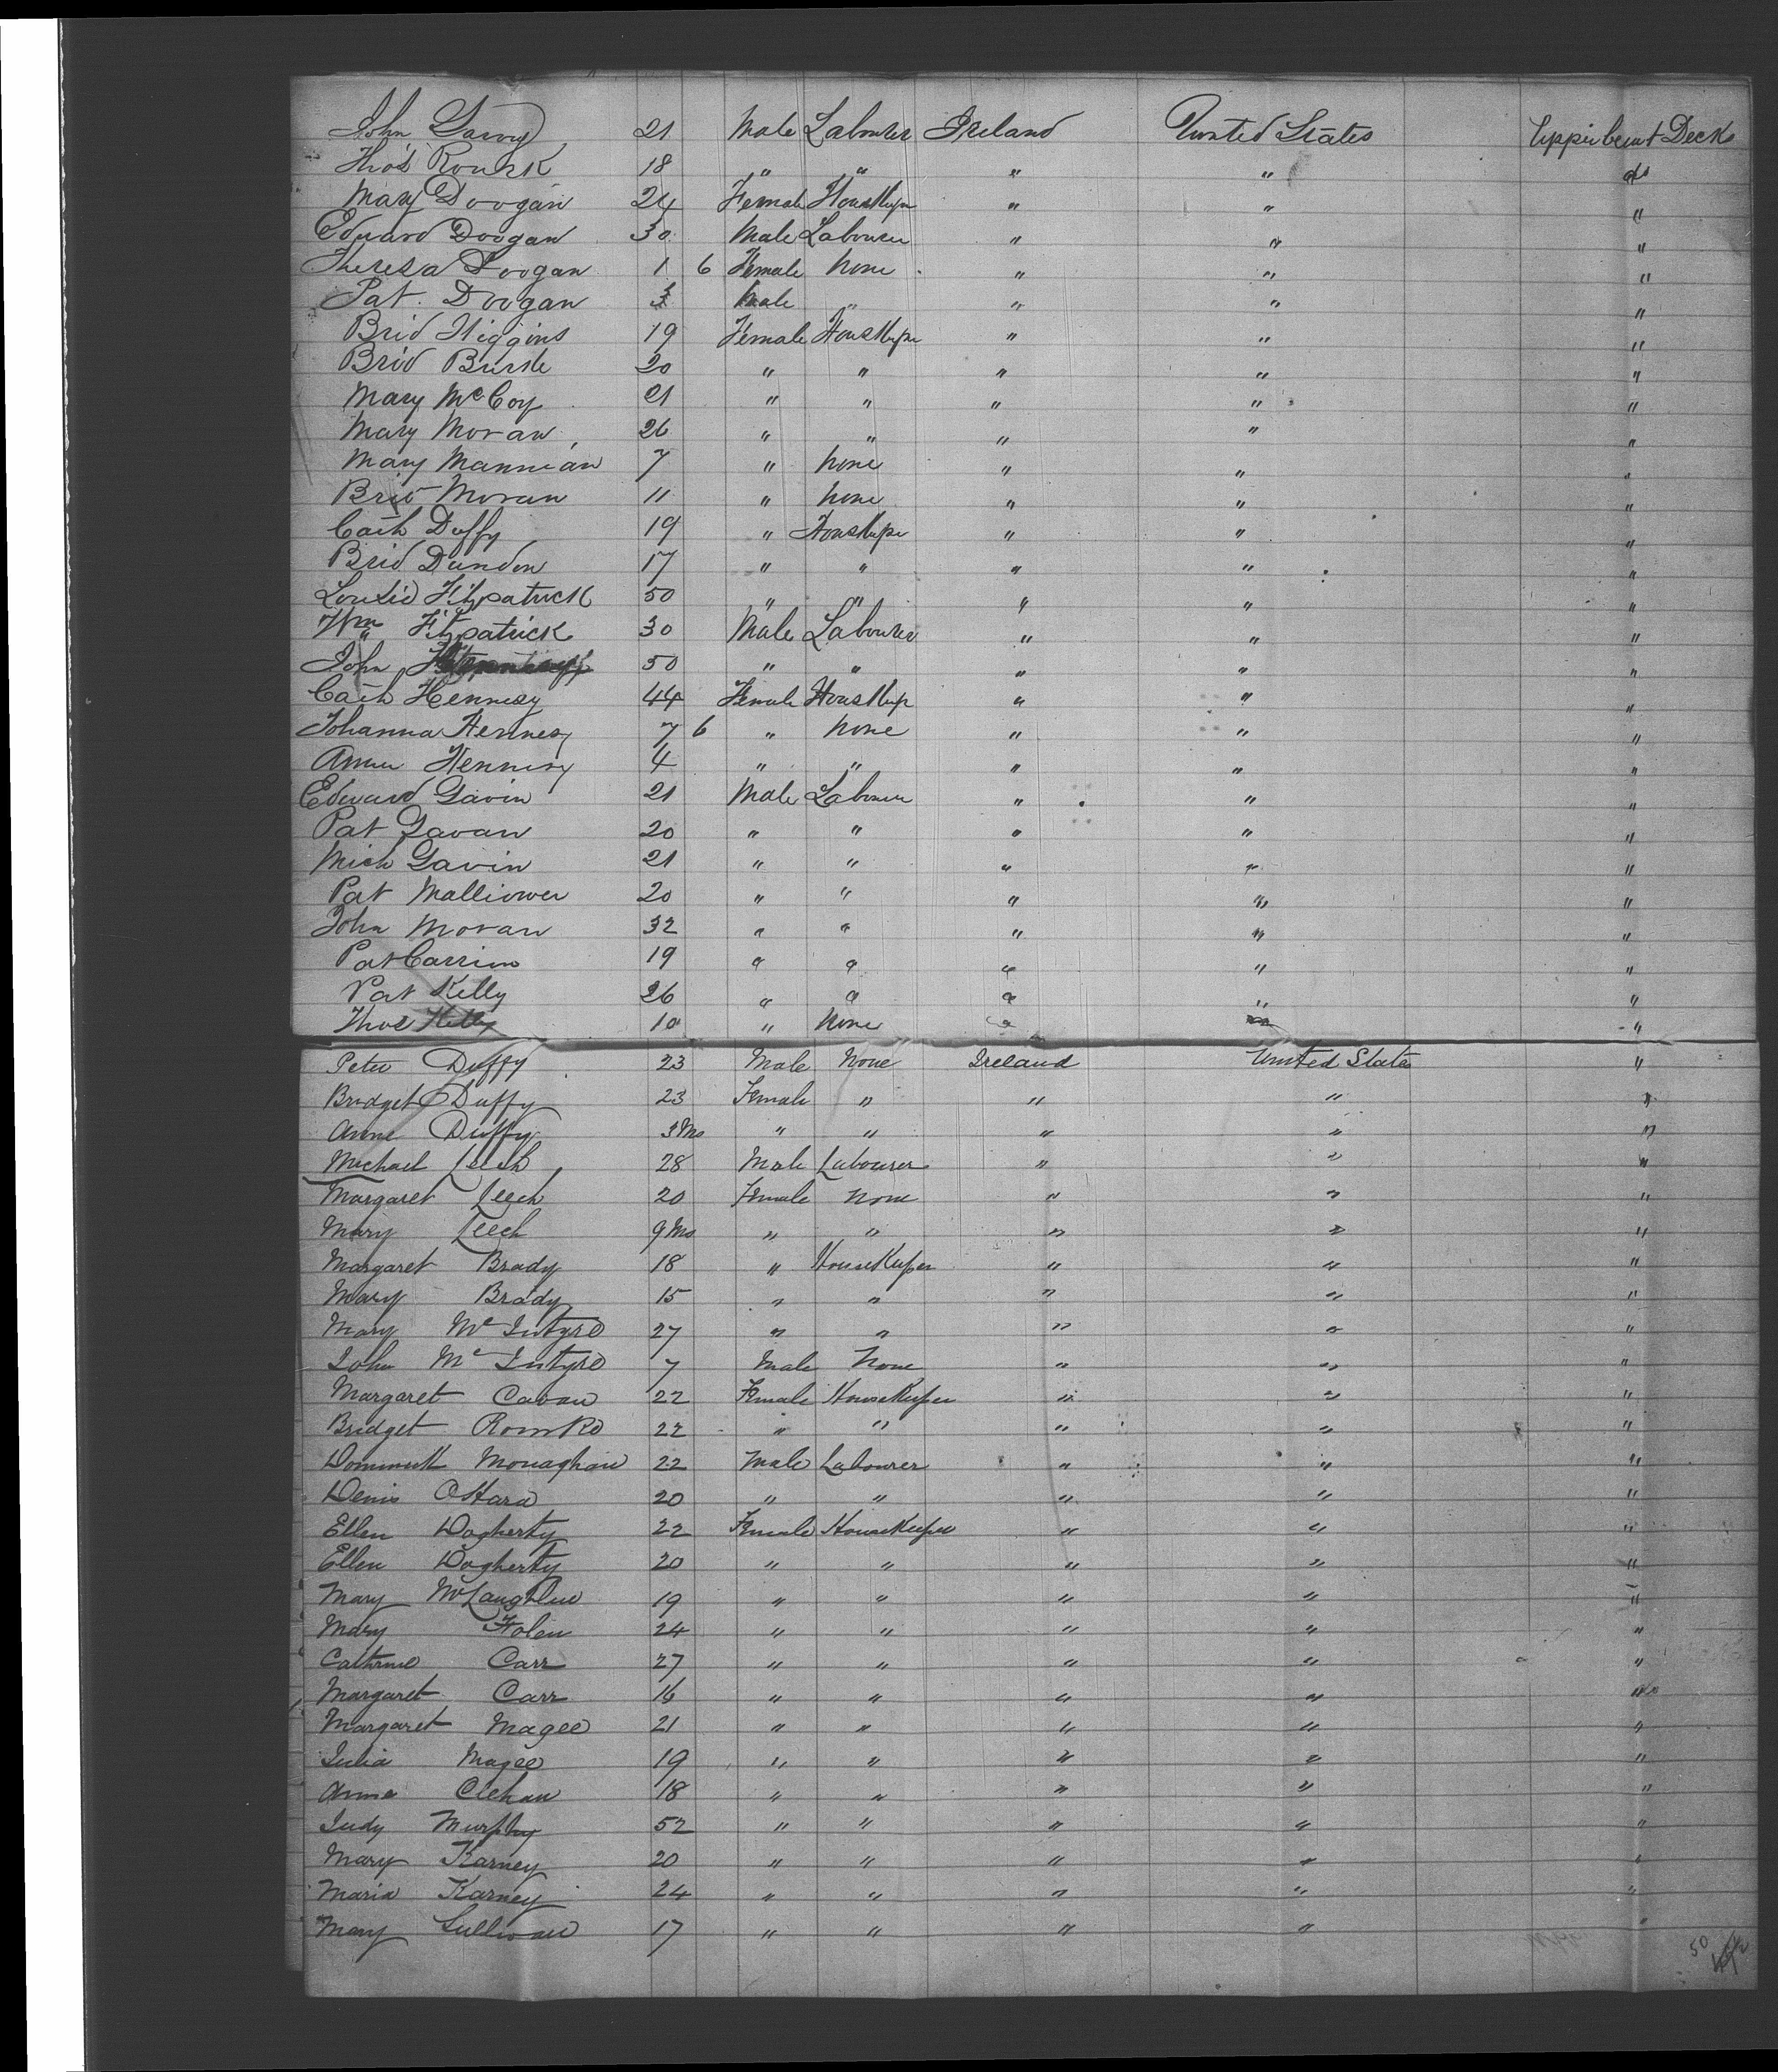 John Garvy 21 Male Labourer Ireland United States Upper betwt Decks
Thos Rourk 18 " " " " do
Mary Doogan 24 Female Housekepr " " "
Edward Doogan 30 Male Labourer " " "
Theresa Doogan 1 6 Female None " " "
Pat. Doogan 3 Male " " " "
Brid Higgins 19 Female Housekepr " " "
Brid Burke 20 " " " " "
Mary McCoy 21 " " " " "
Mary Moran 26 " " " " "
Mary Mannian 7 " None " " "
Brid Moran 11 " None " " "
Cath Duffy 19 " Housekepr " " "
Brid Dundon 17 " " " " "
Fitzpatrick 50 " " " " "
Wm Fitzpatrick 30 Male Labourer " " "
John 50 " " " " "
Cath Hennesy 44 Female Housekep " " "
Johanna Hennesy 7 6 " None " " "
Annie Hennesy 4 " " " " "
Edward Gavin 21 Male Labourer " " "
Pat Gavan 20 " " " " "
Mich Gavin 21 " " " " "
Pat 20 " " " " "
John Moran 32 " " " " "
Pat 19 " " " " "
Pat Kelly 26 " " " " "
Thos Kelly 10 " None " "
Peter Duffy 23 Male None Ireland United States "
Bridget Duffy 23 Female " " " "
Anne Duffy 3 Mo " " " " "
Michael Leech 28 Male Labourer " " "
Margaret Leech 20 Female None " " "
Mary Leech 9 Mo " " " " "
Margaret Brady 18 " HouseKeeper " " "
Mary Brady 15 " " " " "
Mary McIntyre 27 " " " " "
John McIntyre 7 Male None " " "
Margaret Cavan 22 Female HouseKeeper " " "
Bridget 22 " " " " "
Dominick Monaghan 22 Male Labourer " " "
Denis OHara 20 " " " " "
Ellen Dogherty 22 Female HouseKeeper " " "
Ellen Dogherty 20 " " " " "
Mary McLaughlin 19 " " " " "
Mary Folen 24 " " " " "
Cathrine Carr 27 " " " " "
Margaret Carr 16 " " " " "
Margaret Magee 21 " " " " "
Julia Magee 19 " " " " "
Anne Clehan 18 " " " " "
Judy Murphy 52 " " " " "
Mary Karney 20 " " " " "
Maria Karney 24 " " " " "
Mary Sullivan 17 " " " " "
50